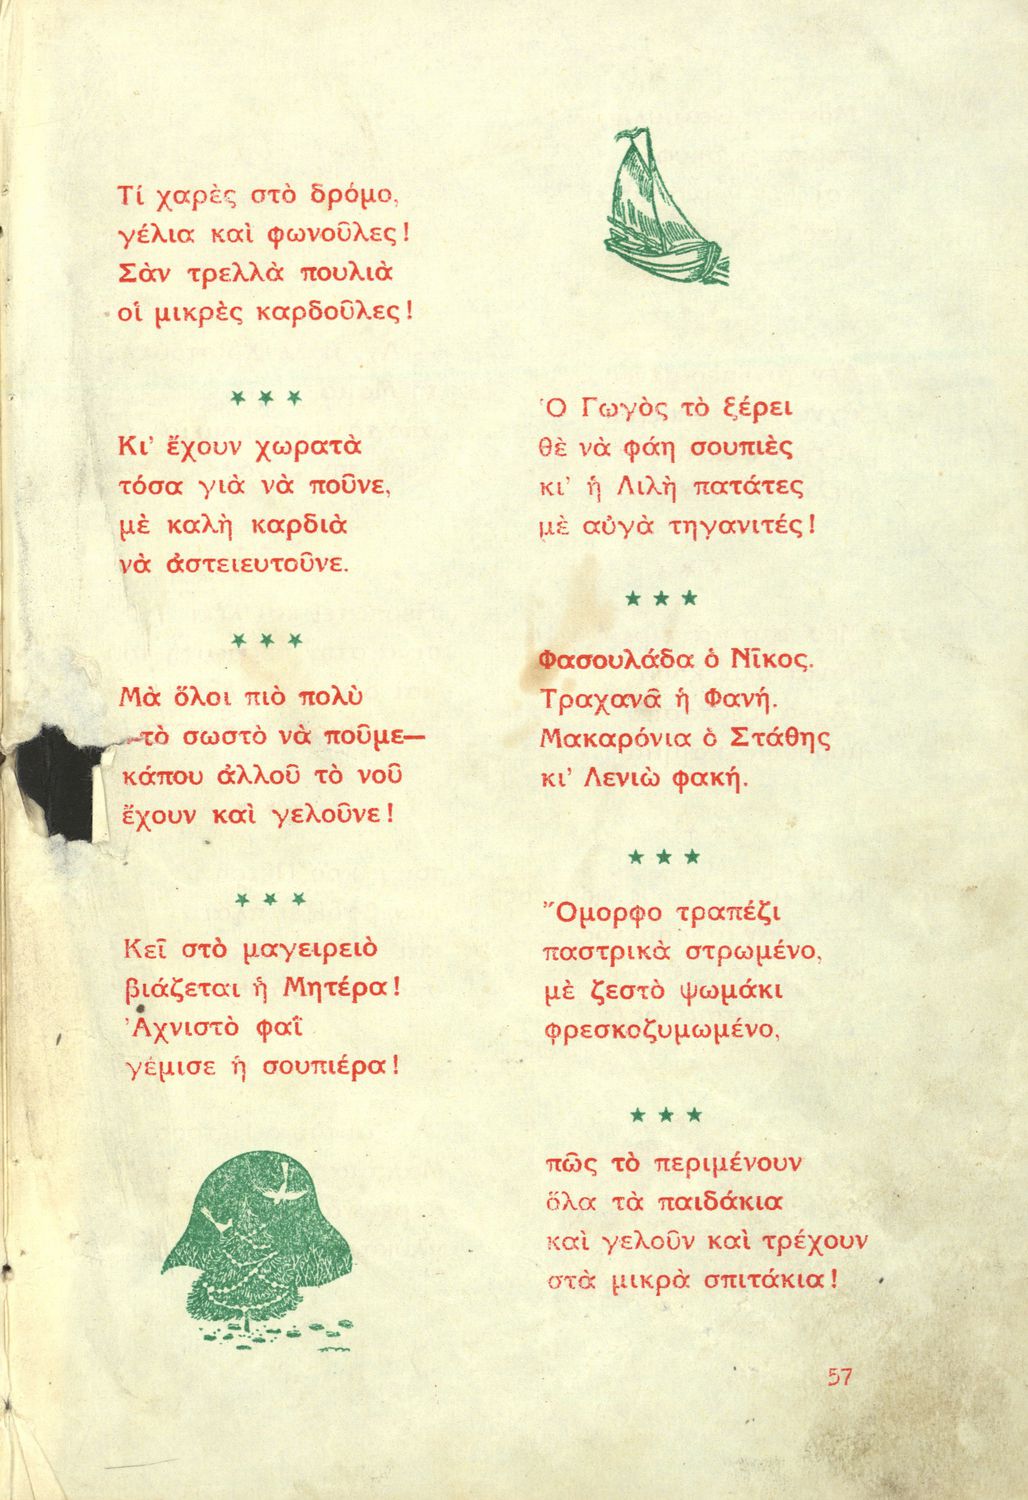 Τί χαρὲς στὸ δρόμο,
γέλια καὶ φωνοῦλες!
Σὰν τρελλὰ πουλιὰ
οἱ μικρὲς καρδοῦλες!
★ ★ ★
Κι' ἔχουν χωρατὰ
τόσα γιὰ νὰ ποῦνε,
μὲ καλὴ καρδιὰ
νὰ ἀστειευτοῦνε.
★ ★ ★
Μὰ ὅλοι πιὸ πολὺ
—τὸ σωστὸ νὰ ποῦμε—
κάπου ἀλλοῦ τὸ νοῦ
ἔχουν καὶ γελοῦνε!
★ ★ ★
Κεῖ στὸ μαγειρειὸ
βιάζεται ἡ Μητέρα!
Ἀχνιστὸ φαῒ
γέμισε ἡ σουπιέρα!
Ὁ Γωγὸς τὸ ξέρει
θὲ νὰ φάη σουπιὲς
κι' ἡ Λιλὴ πατάτες
μὲ αὐγὰ τηγανιτές!
★ ★ ★
Φασουλάδα ὁ Νῖκος.
Τραχανᾶ ἡ Φανή.
Μακαρόνια ὁ Στάθης
κι' Λενιὼ φακή.
★ ★ ★
Ὄμορφο τραπέζι
παστρικὰ στρωμένο,
μὲ ζεστὸ ψωμάκι
φρεσκοζυμωμένο,
★ ★ ★
πῶς τὸ περιμένουν
ὅλα τὰ παιδάκια
καὶ γελοῦν καὶ τρέχουν
στὰ μικρὰ σπιτάκια!
57